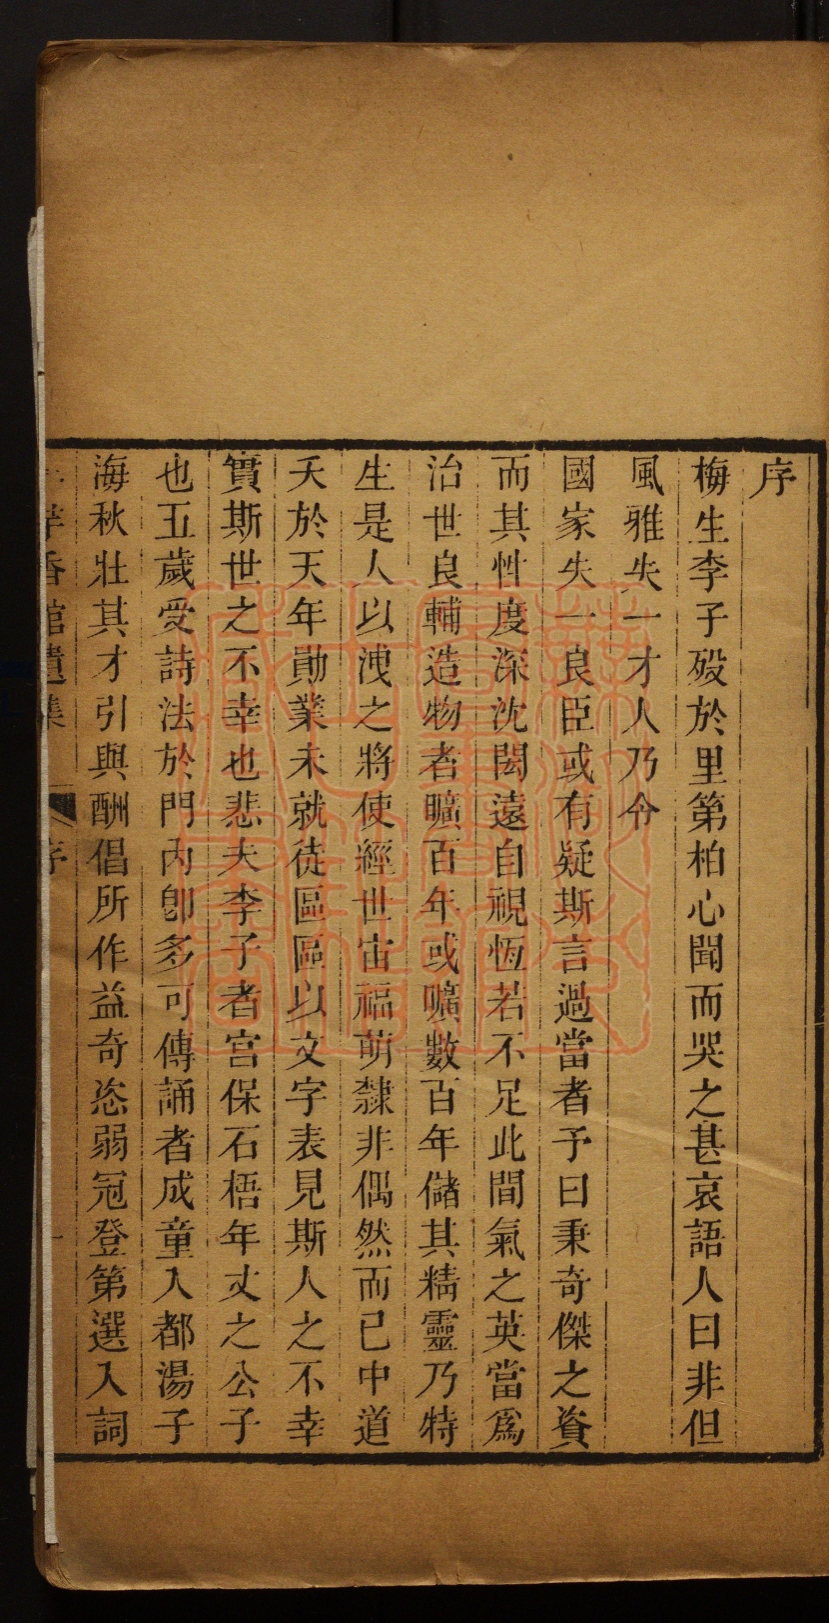 序
梅生李子歿於里第柏心聞而哭之甚哀語人曰非但
風雅失一才人乃令
國家失一良臣或有疑斯言過當者予曰秉奇傑之資
而其性度深沈閎遠自視恆若不足此間氣之英當爲
治世良輔造物者曠百年或曠數百年儲其精靈乃特
生是人以洩之將使經世宙福萌隸非偶然而已中道
夭於天年勛業未就徒區區以文字表見斯人之不幸
實斯世之不幸也悲夫李子者宮保石梧年丈之公子
也五歲受詩法於門內卽多可傳誦者成童入都湯子
海秋壯其才引與酬倡所作益奇恣弱冠登第選入詞
香館遺集
序
一